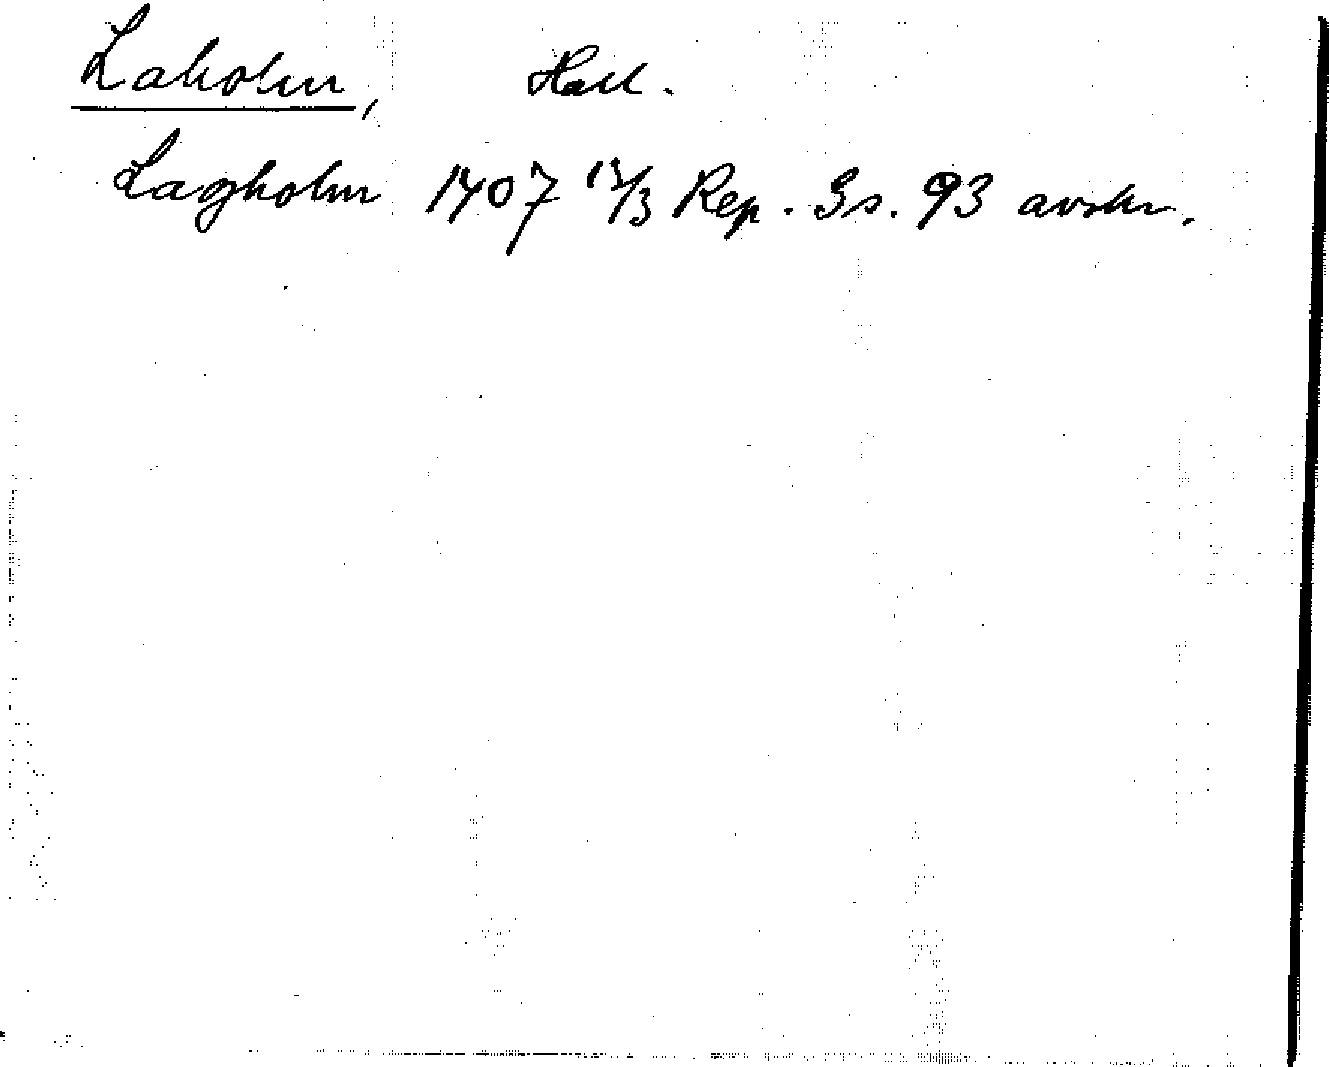 Laholm, Hall.
Lagholm 1407 12/3 Rep. Ss. 93 avskr.